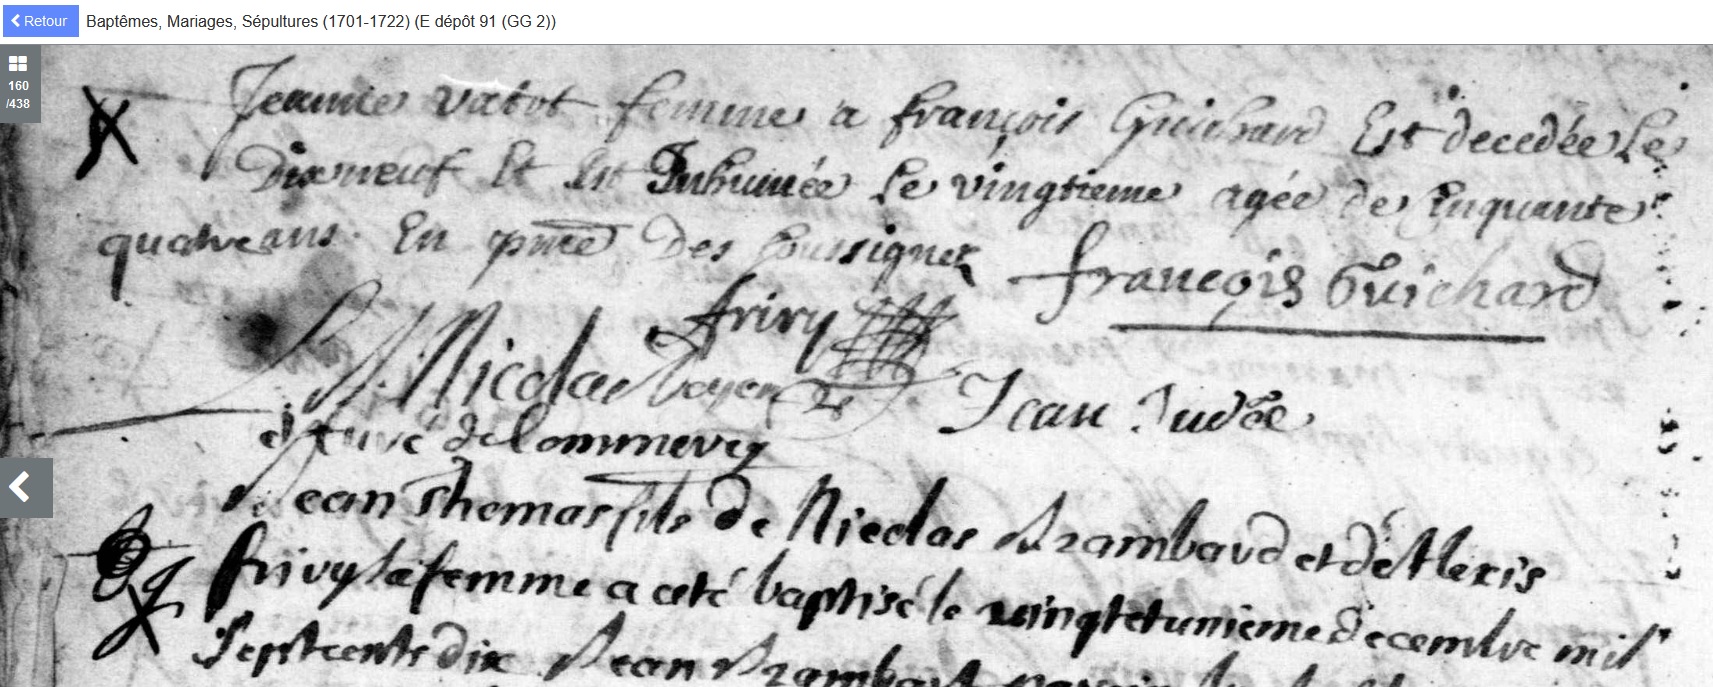 Retour Baptêmes, Mariages, Sépultures (1701-1722) (E dépôt 91 (GG 2))
160
/438
Jeanne vatot femme a françois Guichard Est decedée le
Dixneuf Et Est Inhumée le vingtieme agée de Cinquante
quatre ans. En pnce Des soussignez françois Guichard
frivy
Nicolas Jean Judée
curé de Commercy
Jean Thomas fils de Nicolas Brambaud et d'Alexis
frivy sa femme a esté baptisé le vingtetunieme decembre mil
Septcents dix Jean